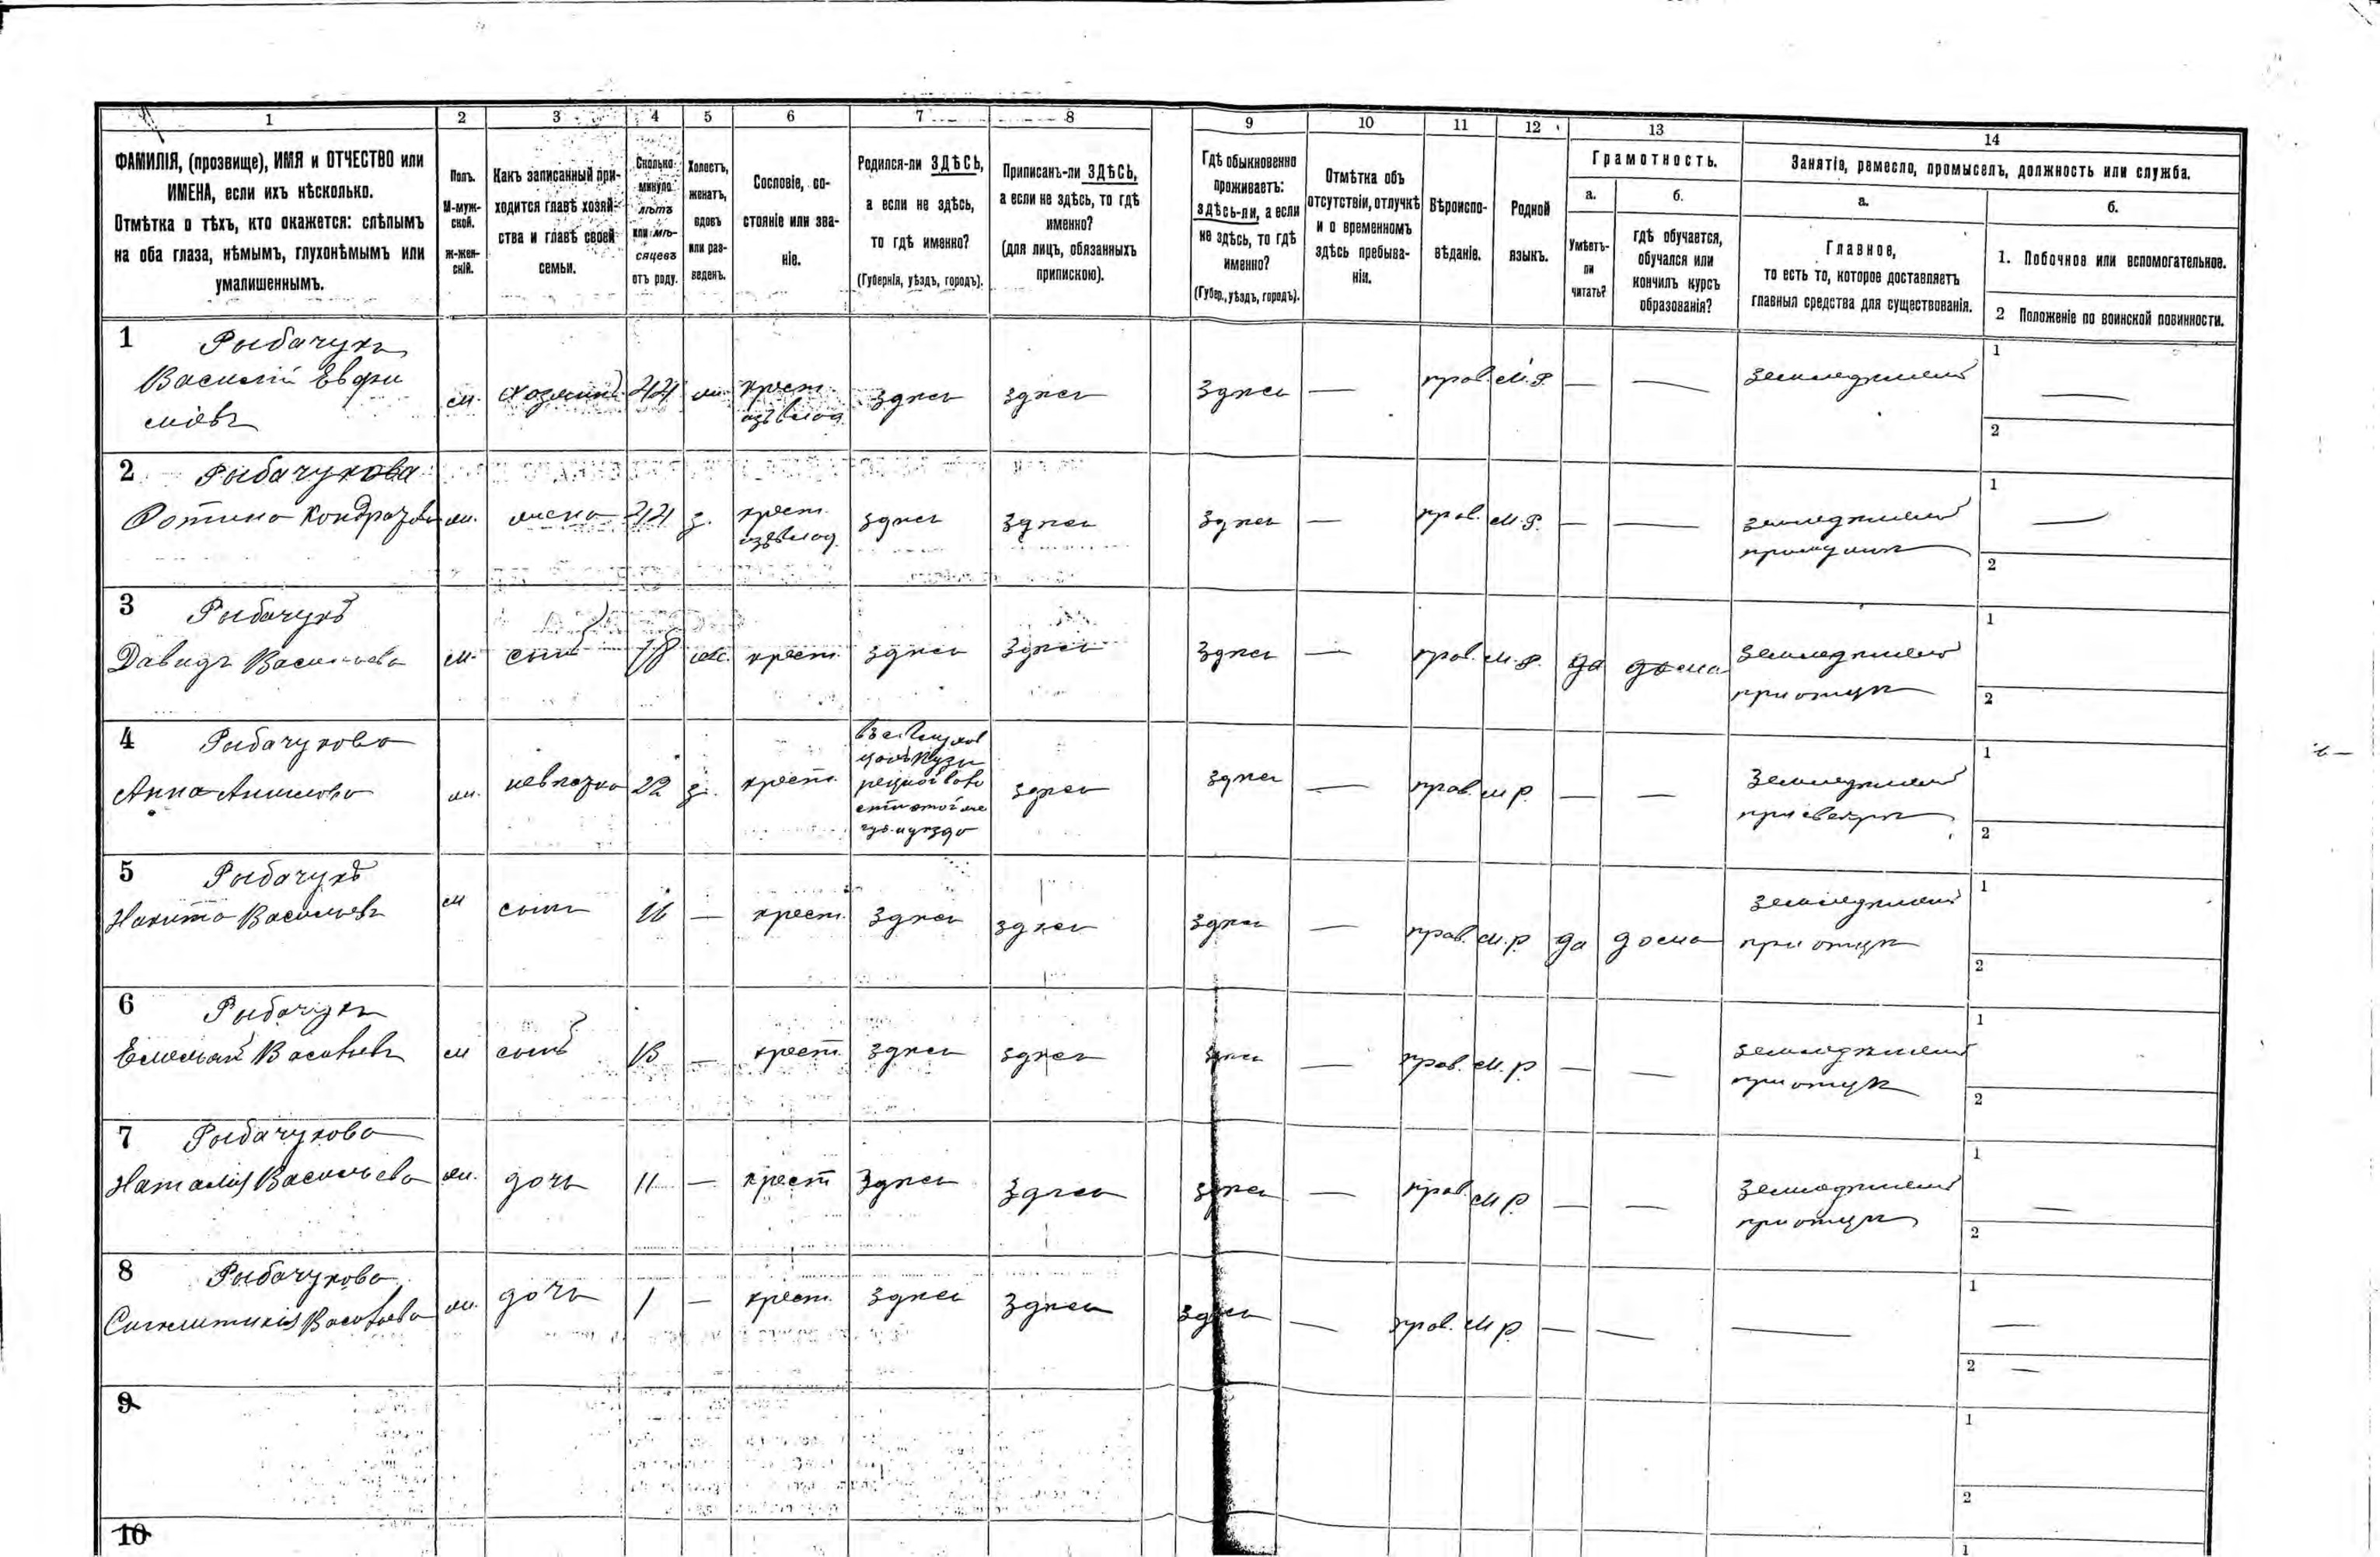 1 2 3 4 5 6 7 8 9 10 11 12 13 14
ФАМИЛІЯ, (прозвище), ИМЯ и ОТЧЕСТВО или
ИМЕНА, если ихъ нѣсколько.
Отмѣтка о тѣхъ, кто окажется: слѣпымъ
на оба глаза, нѣмымъ, глухонѣмымъ или
умалишеннымъ.
Полъ.
М-муж-
ской.
ж-жен-
скій.
Какъ записанный при-
ходится главѣ хозяй-
ства и главѣ своей
семьи.
Сколько
минуло
лѣтъ
или мѣ-
сяцевъ
отъ роду.
Холостъ,
женатъ,
вдовъ
или раз-
веденъ.
Сословіе, со-
стояніе или зва-
ніе.
Родился-ли ЗДѢСЬ,
а если не здѣсь,
то гдѣ именно?
(Губернія, уѣздъ, городъ).
Приписанъ-ли ЗДѢСЬ,
а если не здѣсь, то гдѣ
именно?
(для лицъ, обязанныхъ
припискою).
Гдѣ обыкновенно
проживаетъ:
здѣсь-ли, а если
не здѣсь, то гдѣ
именно?
(Губер., уѣздъ, городъ).
Отмѣтка объ
отсутствіи, отлучкѣ
и о временномъ
здѣсь пребыва-
ніи.
Вѣроиспо-
вѣданіе.
Родной
языкъ.
Грамотность.
а.
Умѣетъ-
ли
читать?
б.
гдѣ обучается,
обучался или
кончилъ курсъ
образованія?
Занятіе, ремесло, промыселъ, должность или служба.
а.
Главное,
то есть то, которое доставляетъ
главныя средства для существованія.
б.
1. Побочное или вспомогательное.
2 Положеніе по воинской повинности.
1 Рыбачукъ
Василій Евфи
мовъ
м. хозяинъ 44 ж. крест. здѣсь здѣсь здѣсь — прав. м.р. — — земледѣлецъ 1 —
2
2 Рыбачукова
Фотина ж. жена з. крест. здѣсь здѣсь здѣсь — прав. м.р. — — земледѣлецъ 1 —
2
3 Рыбачукъ
Давидъ Васильевъ м. сынъ 18 ж. крест. здѣсь здѣсь здѣсь — прав. м.р. да дома земледѣлецъ 1
при отцѣ 2
4 Рыбачукова
Анна ж. невѣстка 22 з. крест. здѣсь здѣсь — прав. м р. — — земледѣлецъ 1
при свекрѣ 2
5 Рыбачукъ
Никита Васильевъ м сынъ 16 — крест. здѣсь здѣсь здѣсь — прав. м.р. да дома земледѣлецъ 1
при отцѣ 2
6 Рыбачукъ
Васильевъ м сынъ 13 — крест. здѣсь здѣсь здѣсь — прав. м.р. — — земледѣлецъ 1
при отцѣ 2
7 Рыбачукова
Наталія Васильева ж. дочь 11 — крест здѣсь здѣсь здѣсь — прав. м р. — — земледѣлецъ 1 —
при отцѣ 2
8 Рыбачукова
Синклитикія Васильева ж. дочь 1 — крест. здѣсь здѣсь здѣсь — прав. м р. — — — 1 —
2 —
9 1
2
10 1